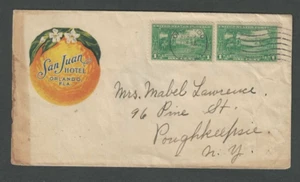 San Juan
HOTEL
ORLANDO,
FLA.
1 1
Mrs. Mabel Lawrence,
96 Pine St.
Poughkeepsie
N. Y.